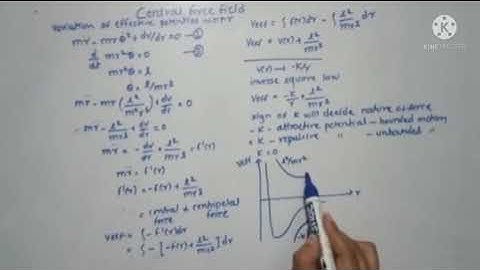 Central force field
variation of effective potential w.r.t r
mr̈ - mrθ̇² + dv/dr = 0 —①
d/dt mr²θ̇ = 0 —②
mr²θ̇ = l
θ̇ = l/mr²
mr̈ - mr (l²/m²r⁴) + dv/dr = 0
mr̈ - l²/mr³ + dv/dr = 0
mr̈ = -dv/dr + l²/mr³ = f'(r)
mr̈ = f'(r)
f'(r) = -f(r) + l²/mr³
= central + centripetal
force force
Veff = ∫-f'(r)dr
= ∫-[-f(r) + l²/mr³]dr
Veff = ∫f(r)dr - ∫l²/mr³ dr
Veff = v(r) + l²/mr²
v(r) → -K/r
inverse square law
Veff = -K/r + l²/mr²
sign of K will decide nature of force
-K - attractive potential - bounded motion
+K - repulsive " - unbounded "
K = 0
Veff
l²/mr²
r
KINEMASTER